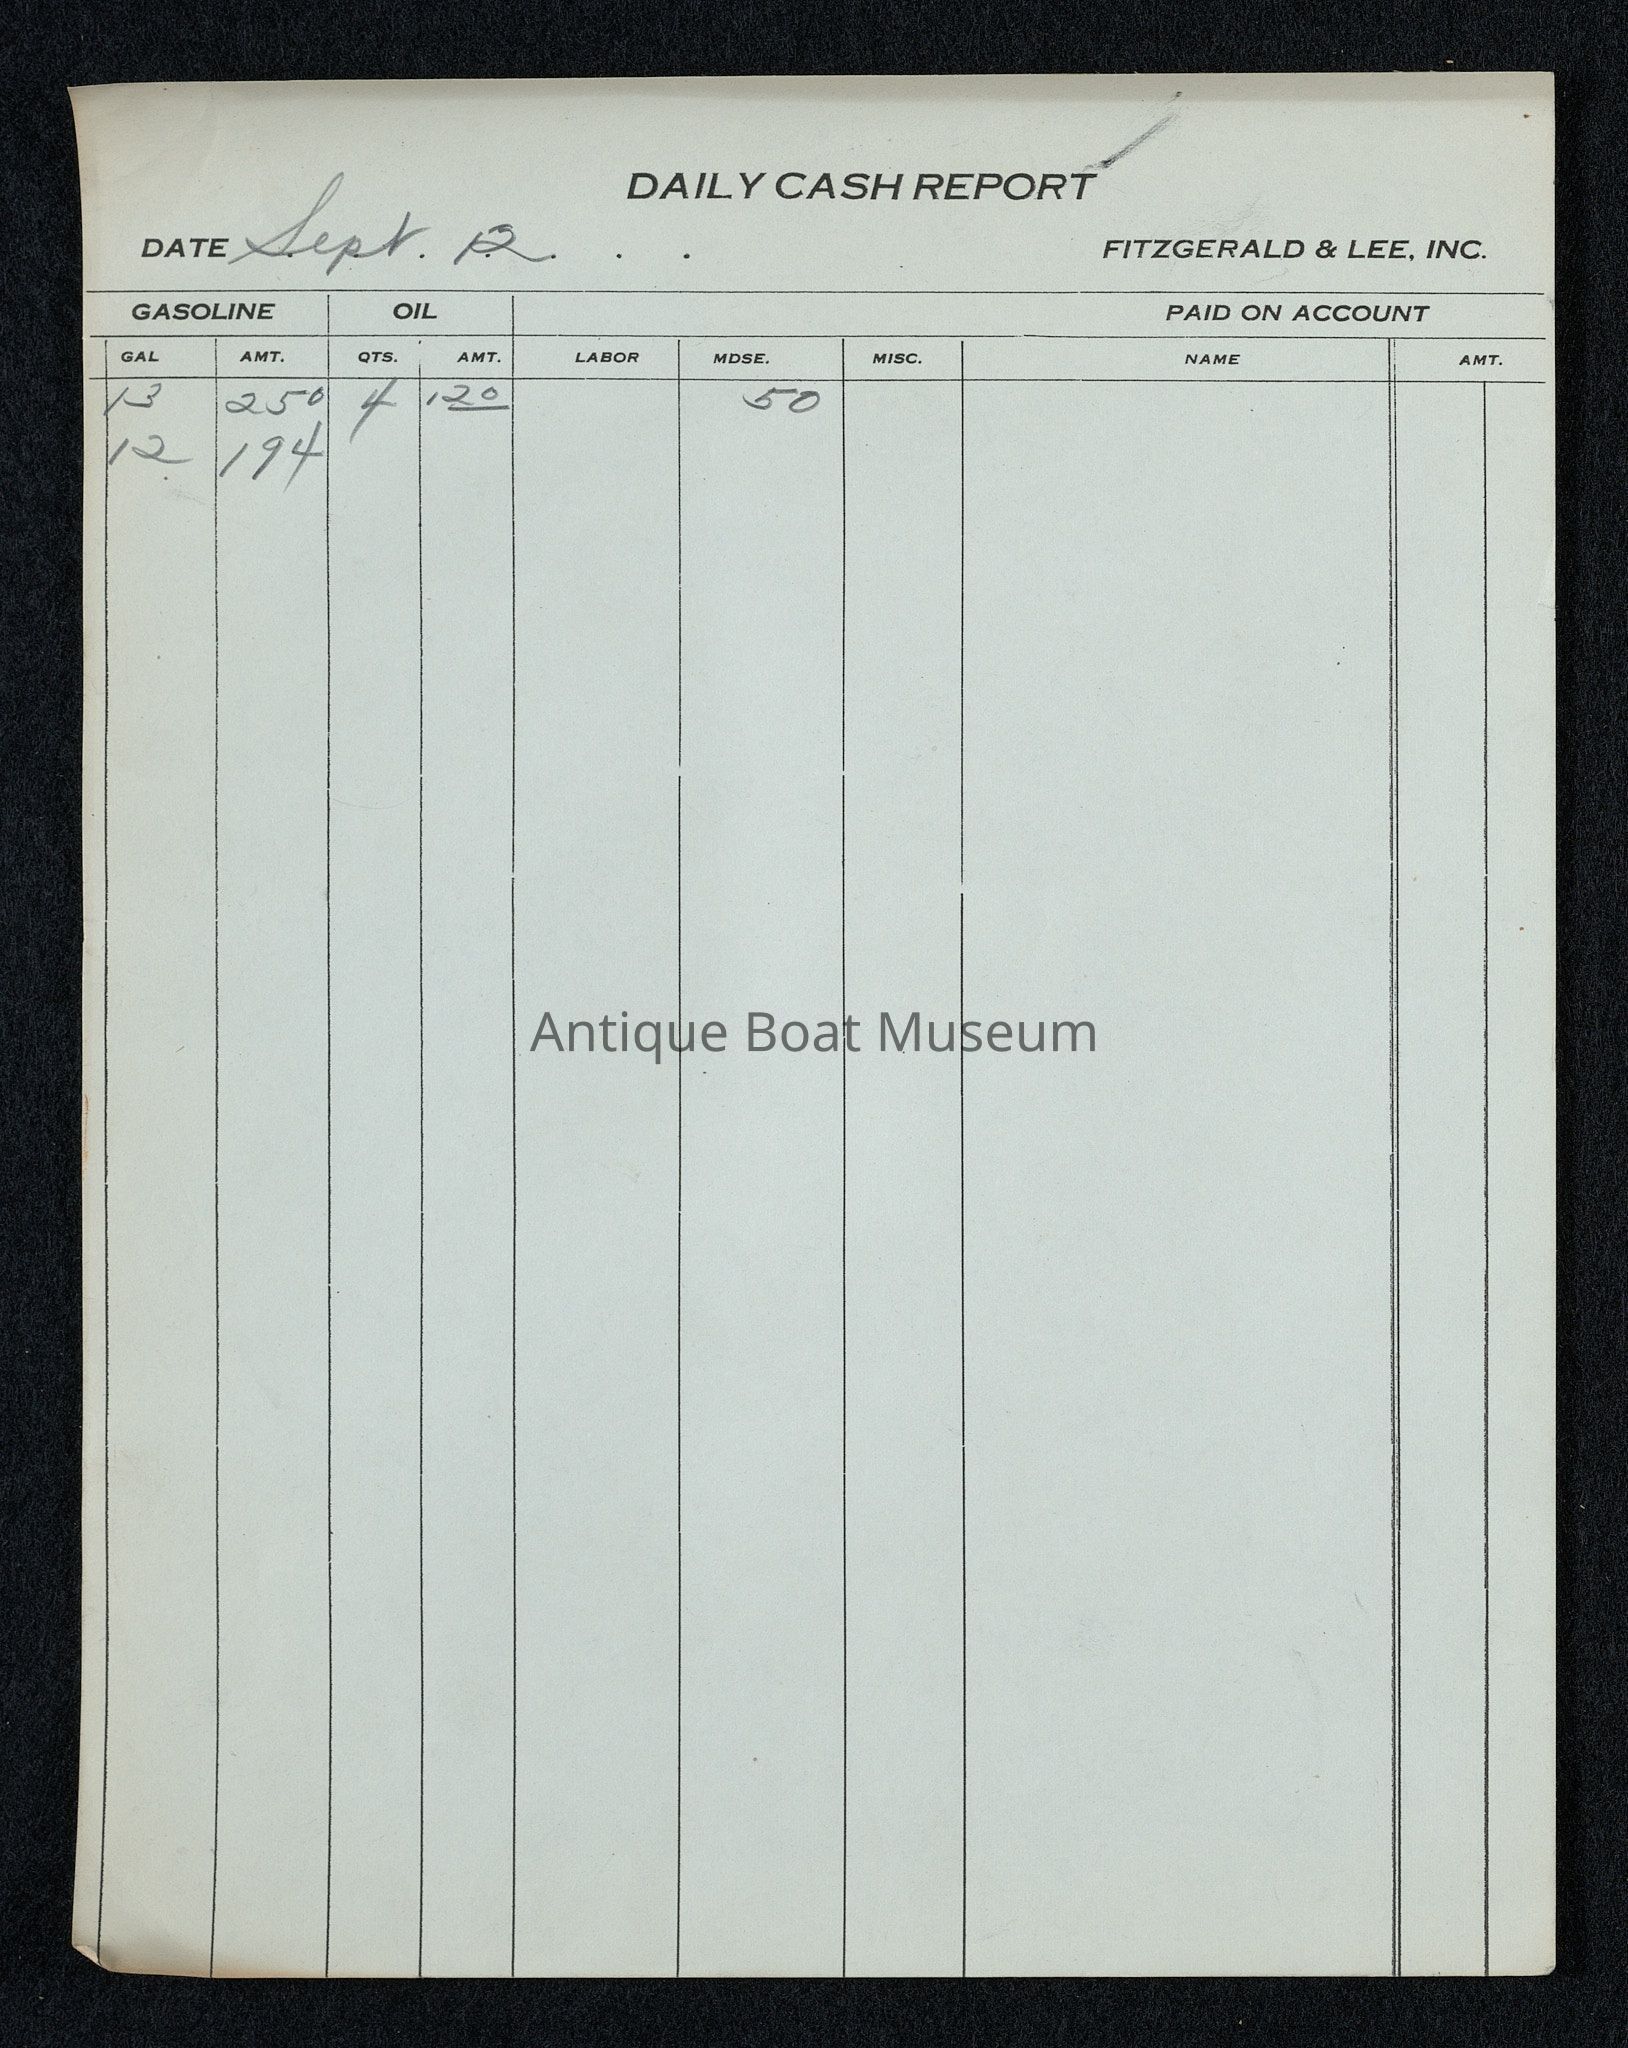 DAILY CASH REPORT
DATE Sept. 12. . .
FITZGERALD & LEE, INC.
GASOLINE OIL PAID ON ACCOUNT
GAL AMT. QTS. AMT. LABOR MDSE. MISC. NAME AMT.
13 250 4 120 50
12 194
Antique Boat Museum